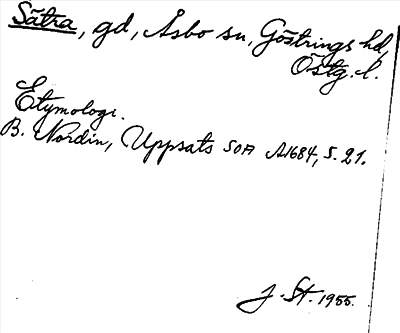 Sätra, gd, Åsbo sn, Göstrings hd,
Östg. l.
Etymologi.
B. Nordin, Uppsats SOA A1684, s. 21.
J. St. 1955.